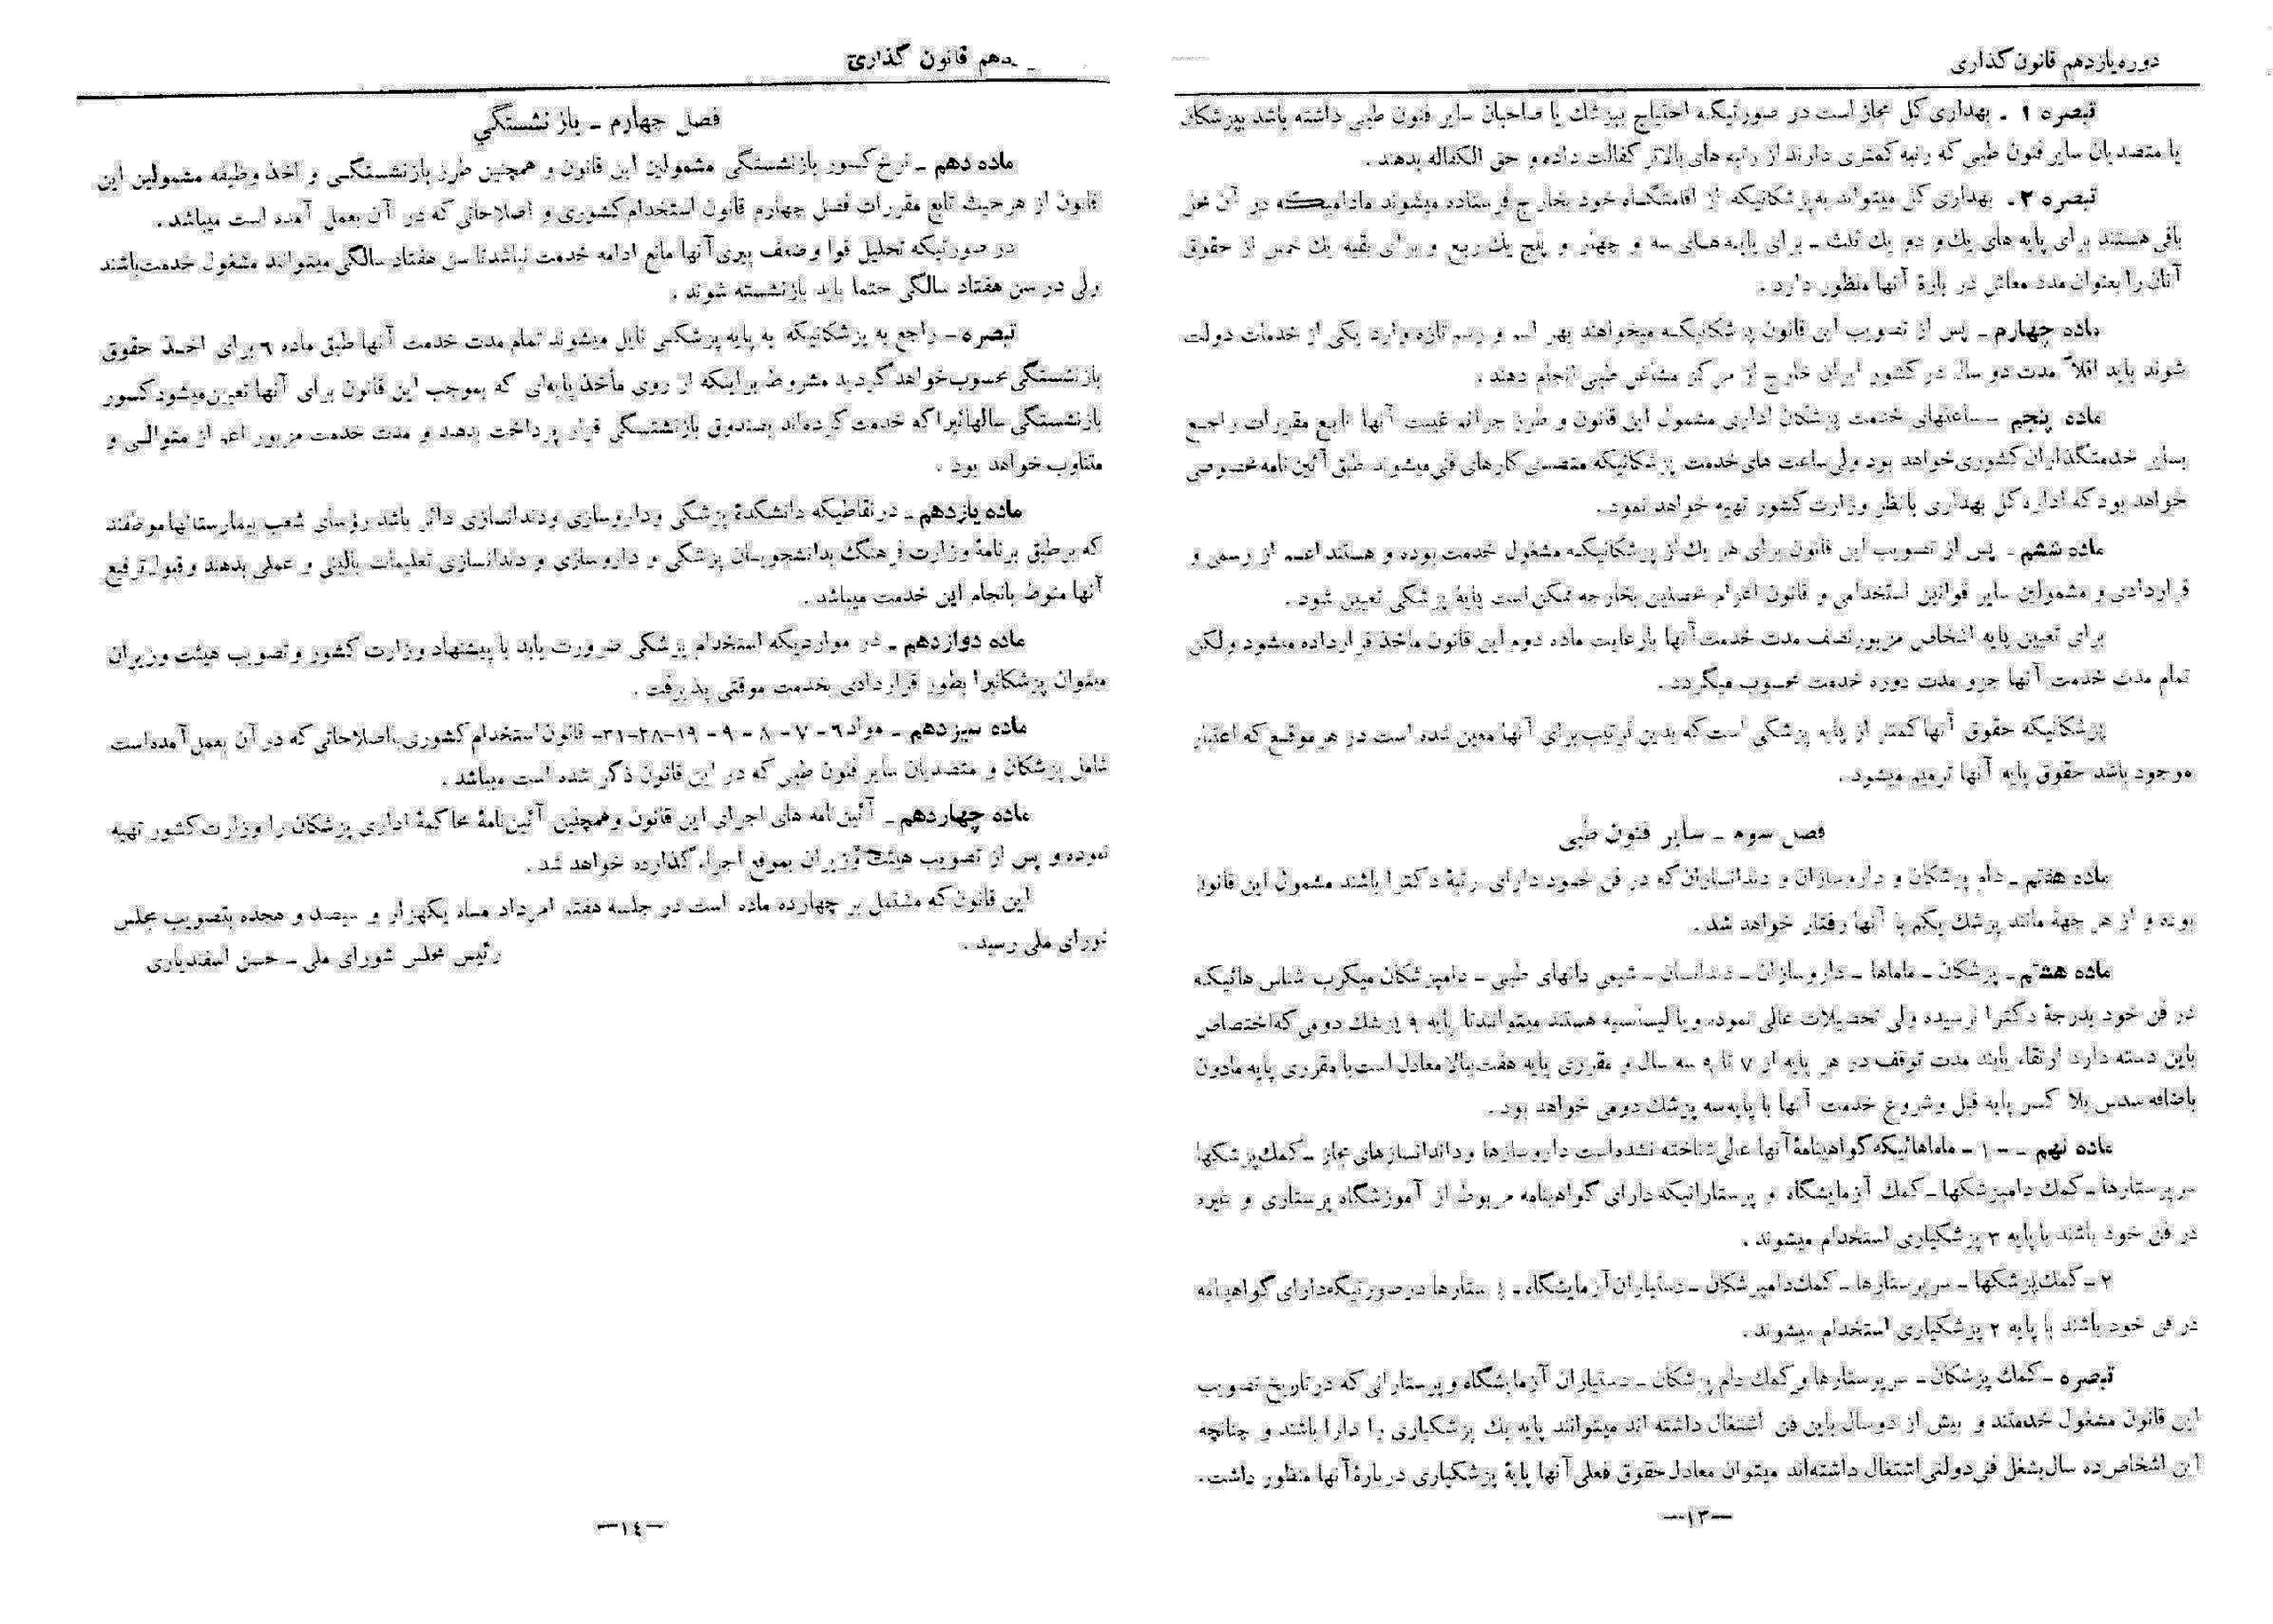 دوره یازدهم قانون کذاری
تبصره ۱ ـ بهداری کل مجاز است در صورتیکه احتیاج بپزشك یا صاحبان سایر فنون طبی داشته باشد بپزشکان
یا متصدیان سایر فنون طبی که رتبه کمتری دارند از رتبه های بالاتر کفالت داده و حق الکفاله بدهند .
تبصره ۲ ـ بهداری کل میتواند به پزشکانیکه از اقامتگاه خود بخارج فرستاده میشوند مادامیکه در آن محل
باقی هستند برای پایه های یك و دو یك ثلث ـ برای پایه های سه و چهار و پنج یك ربع و برای بقیه یك خمس از حقوق
آنان را بعنوان مدد معاش در بارهٔ آنها منظور دارد .
ماده چهارم ـ پس از تصویب این قانون پزشکانیکه میخواهند بهر اسم و رسم تازه وارد یکی از خدمات دولت
شوند باید اقلاً مدت دو سال در کشور ایران خارج از مرکز مشاغل طبی انجام دهند .
ماده پنجم ـ ساعتهای خدمت پزشکان اداری مشمول این قانون و طرز جرائم غیبت آنها تابع مقررات راجع
بسایر خدمتگذاران کشوری خواهد بود ولی ساعت های خدمت پزشکانیکه متصدی کارهای فنی میشوند طبق آئین نامه مخصوصی
خواهد بود که اداره کل بهداری با نظر وزارت کشور تهیه خواهد نمود .
ماده ششم ـ پس از تصویب این قانون برای هر یك از پزشکانیکه مشغول خدمت بوده و هستند اعم از رسمی و
قراردادی و مشمولین سایر قوانین استخدامی و قانون اعزام محصلین بخارجه ممکن است پایهٔ پزشکی تعیین شود .
برای تعیین پایه اشخاص مزبور نصف مدت خدمت آنها بارعایت ماده دوم این قانون ماخذ قرار داده میشود ولکن
تمام مدت خدمت آنها جزو مدت دوره خدمت محسوب میگردد .
پزشکانیکه حقوق آنها کمتر از پایه پزشکی است که بدین ترتیب برای آنها معین شده است در هر موقع که اعتبار
موجود باشد حقوق پایه آنها ترمیم میشود .
فصل سوم ـ سایر فنون طبی
ماده هفتم ـ دام پزشکان و داروسازان و دندانسازان که در فن خود دارای رتبهٔ دکترا باشند مشمول این قانون
بوده و از هر جهة مانند پزشك یکم با آنها رفتار خواهد شد .
ماده هشتم ـ پزشکان ـ ماماها ـ داروسازان ـ دندانسازان ـ شیمی دانهای طبی ـ دامپزشکان میکرب شناس هائیکه
در فن خود بدرجهٔ دکترا نرسیده ولی تحصیلات عالی نموده و یا لیسانسیه هستند میتوانند تا پایه ۹ پزشك دومی که اختصاص
باین دسته دارد ارتقاء یابند مدت توقف در هر پایه از ۷ تا ۹ سه سال و مقرری پایه هفت ببالا معادل است با مقرری پایه مادون
باضافه سدس بلا کسر پایه قبل و شروع خدمت آنها با پایه سه پزشك دومی خواهد بود .
ماده نهم ـ ۱ ـ ماماهائیکه گواهینامهٔ آنها عالی شناخته نشده است داروسازها و دندانسازهای مجاز ـ کمك پزشکها
سرپرستارها ـ کمك دامپزشکها ـ کمك آزمایشگاه و پرستارانیکه دارای گواهینامه مربوط از آموزشگاه پرستاری و غیره
در فن خود باشند با پایه ۳ پزشکیاری استخدام میشوند .
۲ ـ کمك پزشکها ـ سرپرستارها ـ کمك دامپزشکان ـ دستیاران آزمایشگاه ـ پرستارها در صورتیکه دارای گواهینامه
در فن خود باشند با پایه ۲ پزشکیاری استخدام میشوند .
تبصره ـ کمك پزشکان ـ سرپرستارها و کمك دام پزشکان ـ دستیاران آزمایشگاه و پرستارانی که در تاریخ تصویب
این قانون مشغول خدمتند و بیش از دو سال باین فن اشتغال داشته اند میتوانند پایه یك پزشکیاری را دارا باشند و چنانچه
این اشخاص ده سال بشغل فنی دولتی اشتغال داشته‌اند میتوان معادل حقوق فعلی آنها پایهٔ پزشکیاری در بارهٔ آنها منظور داشت .
—۱۳—
دهم قانون گذاری
فصل چهارم ـ بازنشستگی
ماده دهم ـ نرخ کسور بازنشستگی مشمولین این قانون و همچنین طرز بازنشستگی و اخذ وظیفه مشمولین این
قانون از هر حیث تابع مقررات فصل چهارم قانون استخدام کشوری و اصلاحاتی که در آن بعمل آمده است میباشد .
در صورتیکه تحلیل قوا و ضعف پیری آنها مانع ادامه خدمت نباشد تا سن هفتاد سالگی میتوانند مشغول خدمت باشند
ولی در سن هفتاد سالگی حتما باید بازنشسته شوند .
تبصره ـ راجع به پزشکانیکه به پایه پزشکی نایل میشوند تمام مدت خدمت آنها طبق ماده ٦ برای اخذ حقوق
بازنشستگی محسوب خواهد گردید مشروط براینکه از روی مأخذ پایه‌ای که بموجب این قانون برای آنها تعیین میشود کسور
بازنشستگی سالهائیرا که خدمت کرده‌اند بصندوق بازنشستگی قبلا پرداخت بدهند و مدت خدمت مزبور اعم از متوالی و
متناوب خواهد بود .
ماده یازدهم ـ در نقاطیکه دانشکدهٔ پزشکی و داروسازی و دندانسازی دائر باشد رؤسای شعب بیمارستانها موظفند
که برطبق برنامهٔ وزارت فرهنگ بدانشجویان پزشکی و داروسازی و دندانسازی تعلیمات بالینی و عملی بدهند و قبول ترفیع
آنها منوط بانجام این خدمت میباشد .
ماده دوازدهم ـ در مواردیکه استخدام پزشکی ضرورت یابد با پیشنهاد وزارت کشور و تصویب هیئت وزیران
میتوان پزشکانیرا بطور قراردادی بخدمت موقتی پذیرفت .
ماده سیزدهم ـ مواد ٦ - ۷ - ۸ - ۹ - ۱۹-۲۸-۳۱- قانون استخدام کشوری بااصلاحاتی که در آن بعمل آمده است
شامل پزشکان و متصدیان سایر فنون طبی که در این قانون ذکر شده است میباشد .
ماده چهاردهم ـ آئین نامه های اجرای این قانون و همچنین آئین نامهٔ محاکمهٔ اداری پزشکان را وزارت کشور تهیه
نموده و پس از تصویب هیئت وزیران بموقع اجراء گذارده خواهد شد .
این قانون که مشتمل بر چهارده ماده است در جلسه هفتم امرداد ماه یکهزار و سیصد و هجده بتصویب مجلس
شورای ملی رسید .
رئیس مجلس شورای ملی ـ حسن اسفندیاری
—١٤—